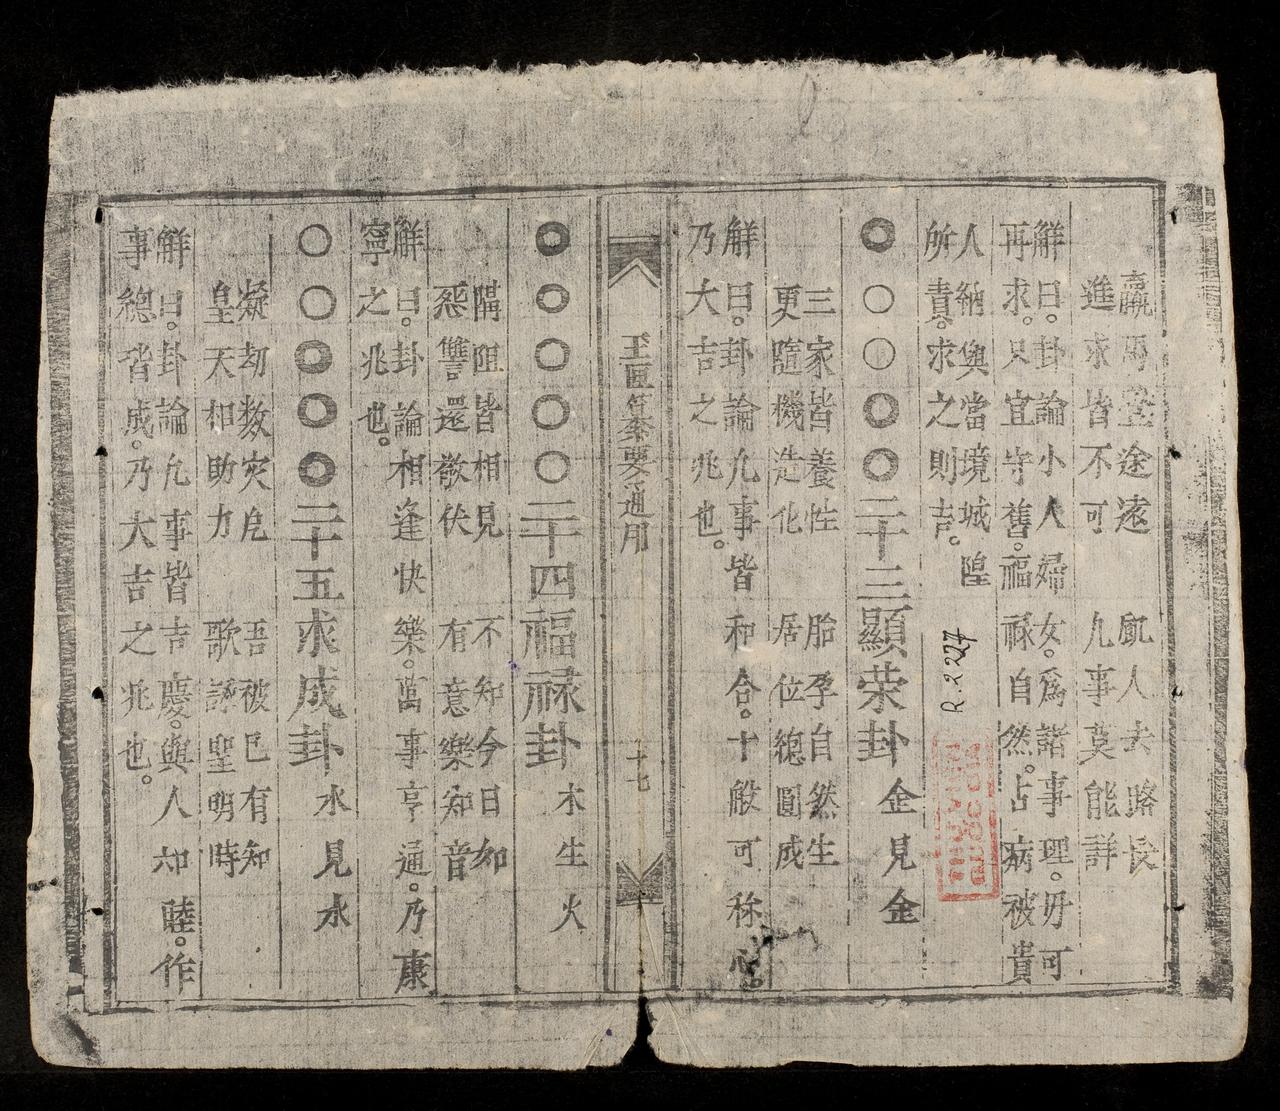 羸馬登途遠 凢人去路長
進求皆不可 凢事莫能詳
觧曰。卦論小人婦女。為諸事理。毋可
再求。只宜守舊。福祿自然。占病被貴
人納與當境城隍
所責。求之則吉。
◎○○◎◎二十三顯荣卦 金見金
三家皆養性 胎孕自然生
更隨機造化 居位總圓成
觧曰。卦論凢事皆和合。十般可称心。
乃大吉之兆也。
玉匣纂要通用
十七
◎○○○○二十四福禄卦 木生火
隔阻皆相見 不知今日如
惡讐還散伏 有意樂知音
觧曰。卦論相逢快樂。萬事亨通。乃康
寧之兆也。
○○◎◎◎二十五求成卦 水見水
凝刼数灾危 吾被已有知
皇天相助力 歌詠聖明時
觧曰。卦論凢事皆吉慶。與人和睦。作
事總皆成。乃大吉之兆也。
R.2.224